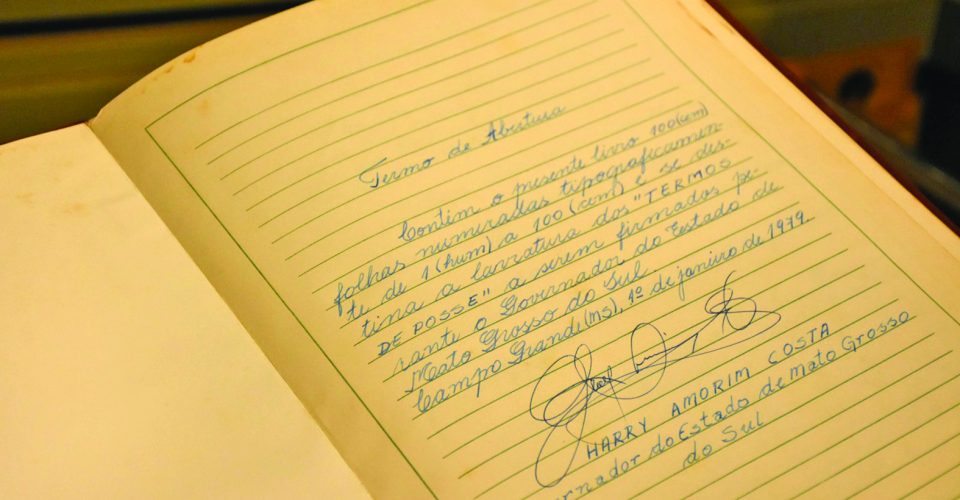 Termo de Abertura
Contém o presente livro 100 (cem)
folhas numeradas tipograficamen-
te de 1 (hum) a 100 (cem) e se des-
tina a lavratura dos "TERMOS
DE POSSE" a serem firmados pe-
rante o Governador do Estado de
Mato Grosso do Sul.
Campo Grande (MS), 1º de janeiro de 1979
HARRY AMORIM COSTA
ernador do Estado de Mato Grosso
do Sul